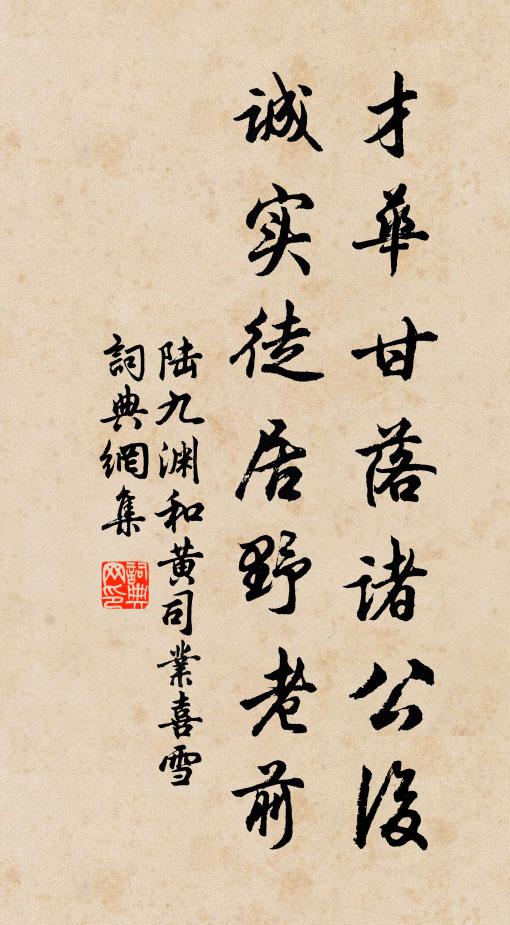 才華甘落诸公後
誠实徒居野老前
陆九渊和黄司業喜雪
詞典網集
詞典网印